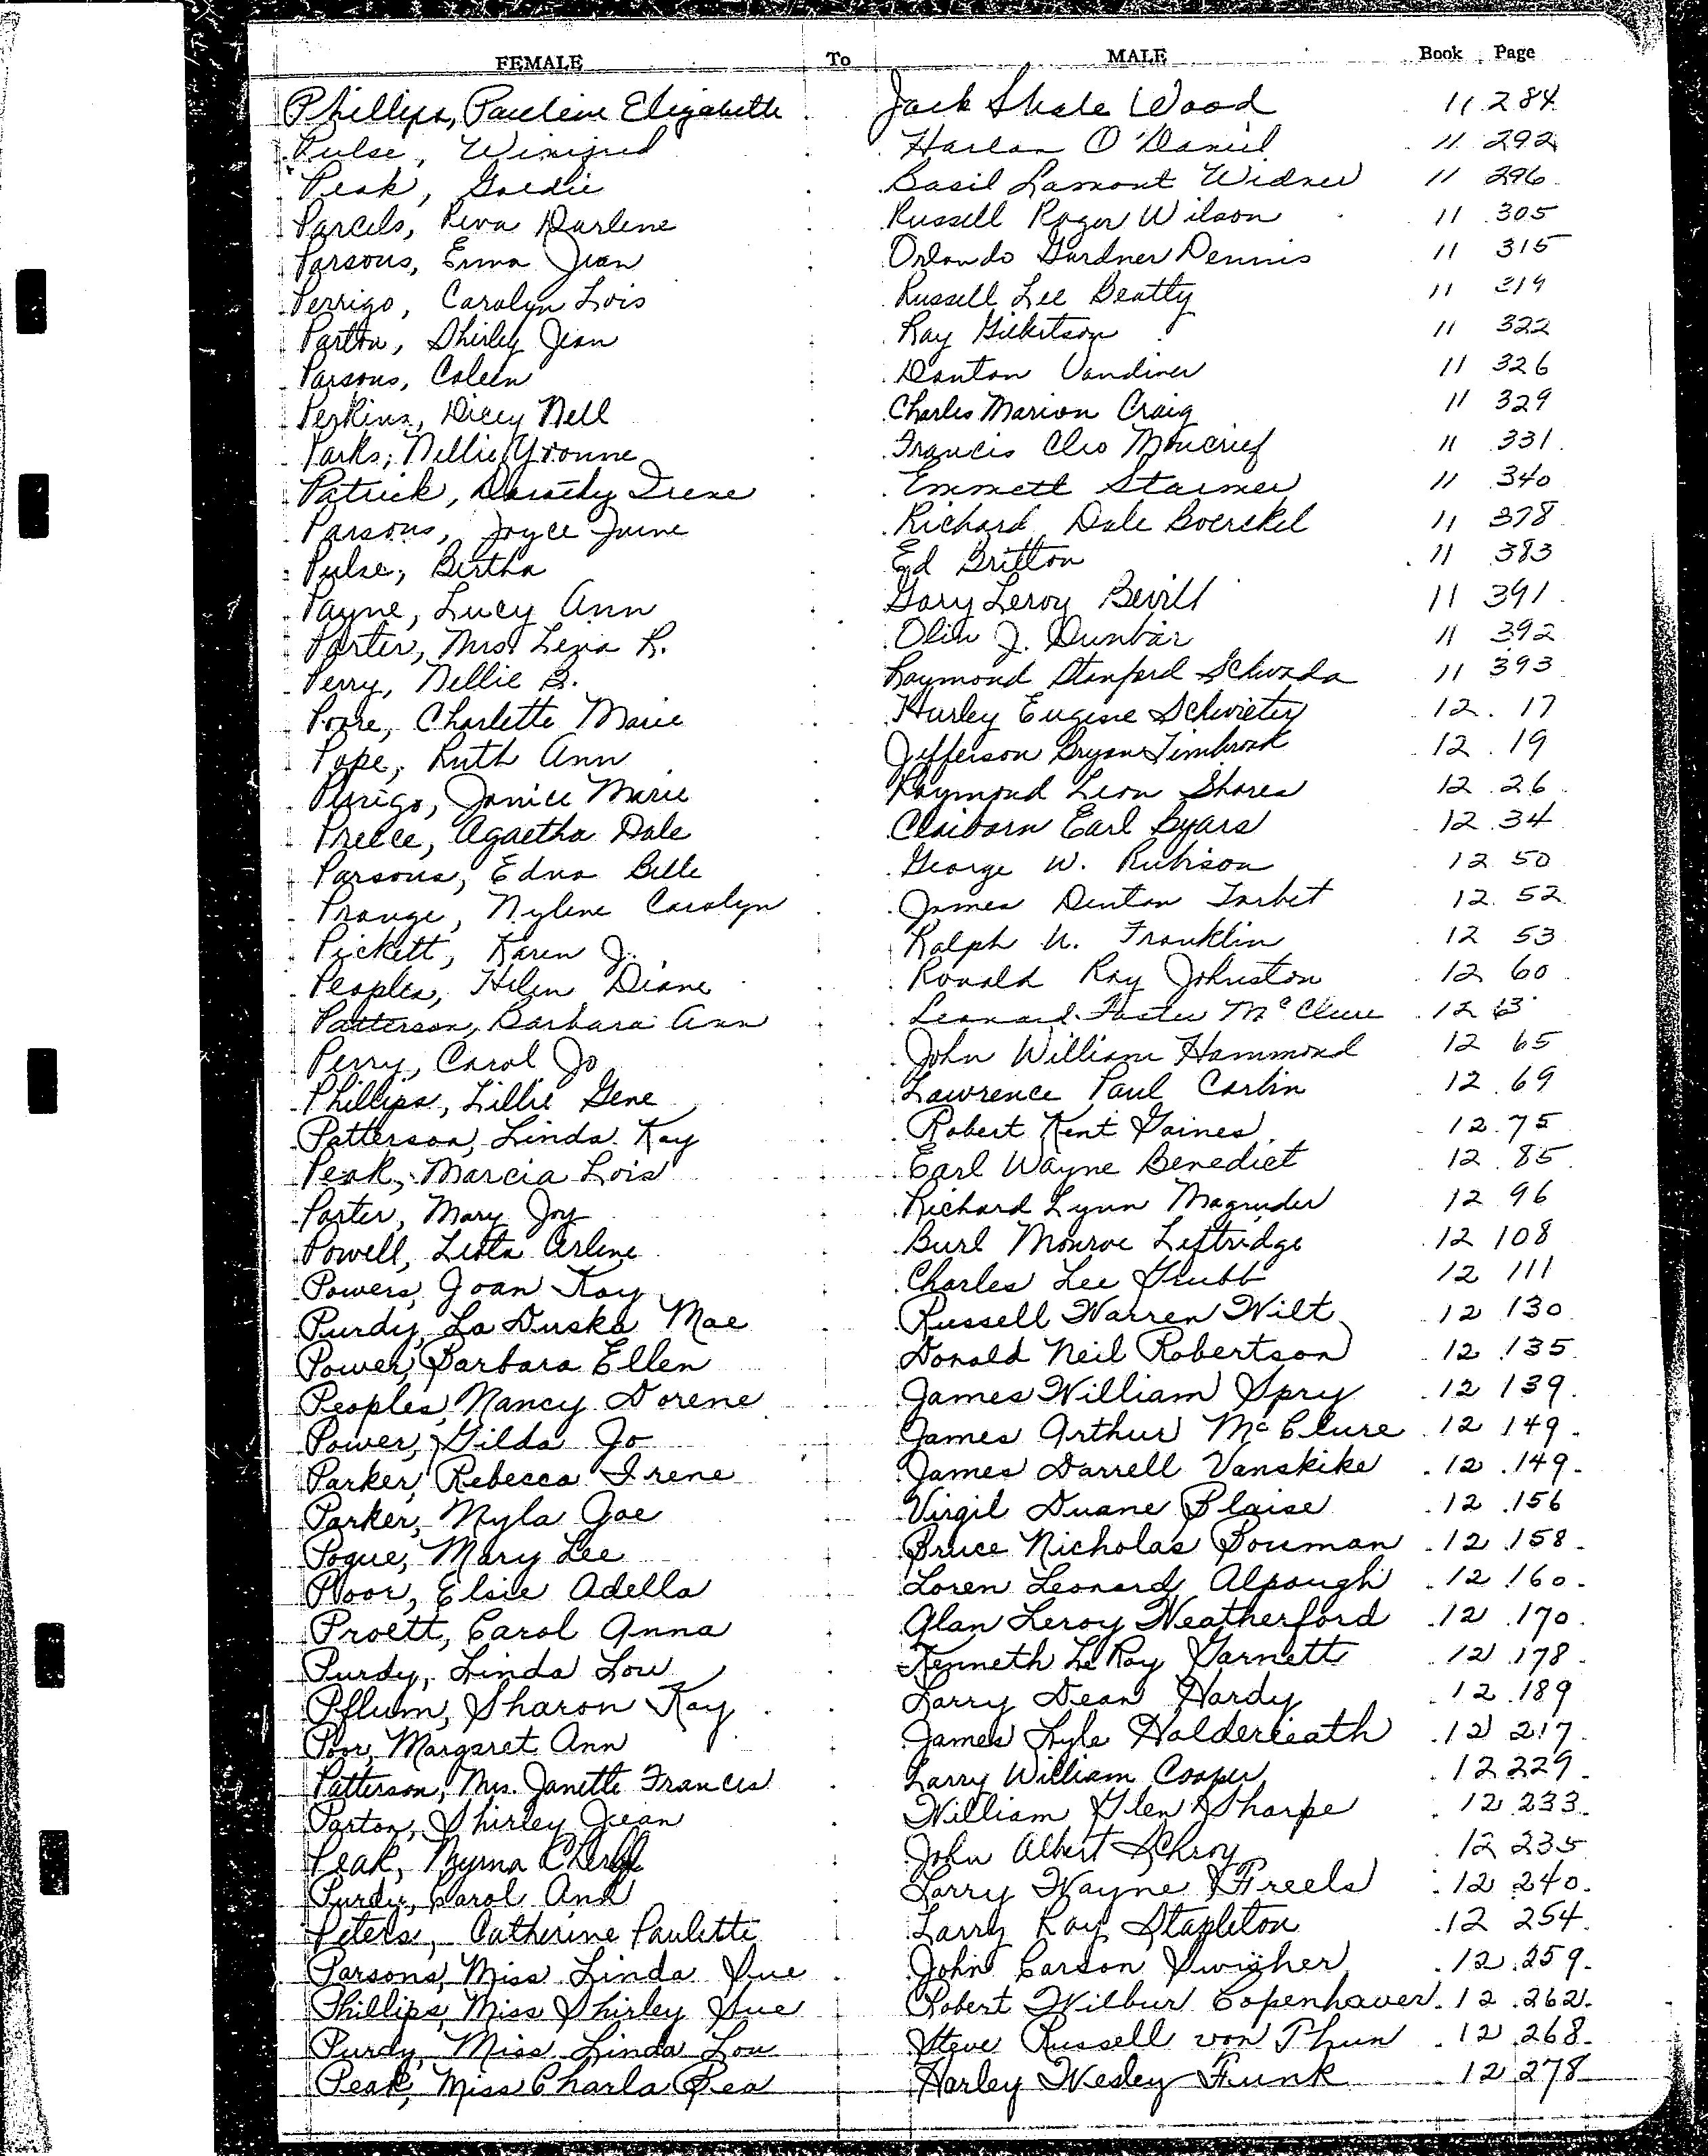 FEMALE To MALE Book Page
Phillips, Pauline Elizabeth Jack Shale Wood 11 284
Pulse, Winifred Harlan O'Daniel 11 292
Peak, Goldie Basil Lamont Widner 11 296
Parcels, Reva Darlene Russell Roger Wilson 11 305
Parsons, Erma Jean Orlando Gardner Dennis 11 315
Perrigo, Carolyn Lois Russell Lee Beatty 11 319
Parton, Shirley Jean Ray Gilbertson 11 322
Parsons, Coleen Danton Vandiver 11 326
Perkins, Dicey Nell Charles Marion Craig 11 329
Parks, Nellie Yvonne Francis Cleo Moncrief 11 331
Patrick, Dorothy Irene Emmett Starmer 11 340
Parsons, Joyce June Richard Dale Boerckel 11 378
Pulse, Bertha Ed Britton 11 383
Payne, Lucy Ann Gary Leroy Bevill 11 391
Porter, Mrs. Lena R. Olin J. Dunbar 11 392
Perry, Nellie B. Raymond Stanford Schwada 11 393
Poore, Charlette Marie Hurley Eugene Schwieter 12 17
Pope, Ruth Ann Jefferson Bryan Timbrook 12 19
Perrigo, Janice Marie Raymond Leon Shores 12 26
Preece, Agaetha Dale Claiborn Earl Byars 12 34
Parsons, Edna Belle George W. Rubison 12 50
Prange, Nylene Carolyn James Denton Tarbet 12 52
Pickett, Karen J. Ralph N. Franklin 12 53
Peoples, Helen Diane Ronald Ray Johnston 12 60
Patterson, Barbara Ann Leonard Foster McClure 12 63
Perry, Carol Jo John William Hammond 12 65
Phillips, Lillie Gene Lawrence Paul Carlin 12 69
Patterson, Linda Kay Robert Kent Gaines 12 75
Peak, Marcia Lois Earl Wayne Benedict 12 85
Porter, Mary Joy Richard Lynn Magruder 12 96
Powell, Leota Arlene Burl Monroe Leftridge 12 108
Powers, Joan Kay Charles Lee Grubb 12 111
Purdy, La Duska Mae Russell Warren Wilt 12 130
Power, Barbara Ellen Donald Neil Robertson 12 135
Peoples, Nancy Dorene James William Spry 12 139
Power, Gilda Jo James Arthur McClure 12 149
Parker, Rebecca Irene James Darrell Vanskike 12 149
Parker, Myla Jae Virgil Duane Blaise 12 156
Pogue, Mary Lee Bruce Nicholas Bouman 12 158
Poor, Elsie Adella Loren Leonard Alpough 12 160
Proett, Carol Anna Alan Leroy Weatherford 12 170
Purdy, Linda Lou Kenneth LeRoy Garnett 12 178
Pflum, Sharon Kay Larry Dean Hardy 12 189
Poor, Margaret Ann James Lyle Haldereath 12 217
Patterson, Mrs. Janette Frances Larry William Cooper 12 229
Parton, Shirley Jean William Glen Sharpe 12 233
Peak, Myrna Cheryl John Albert Schroy 12 235
Purdy, Carol Ann Larry Wayne Freels 12 240
Peters, Catherine Paulette Larry Ray Stapleton 12 254
Parsons, Miss Linda Sue John Carson Swisher 12 259
Phillips, Miss Shirley Sue Robert Wilbur Copenhaver 12 262
Purdy, Miss Linda Lou Steve Russell von Thun 12 268
Peak, Miss Charla Rea Harley Wesley Funk 12 278